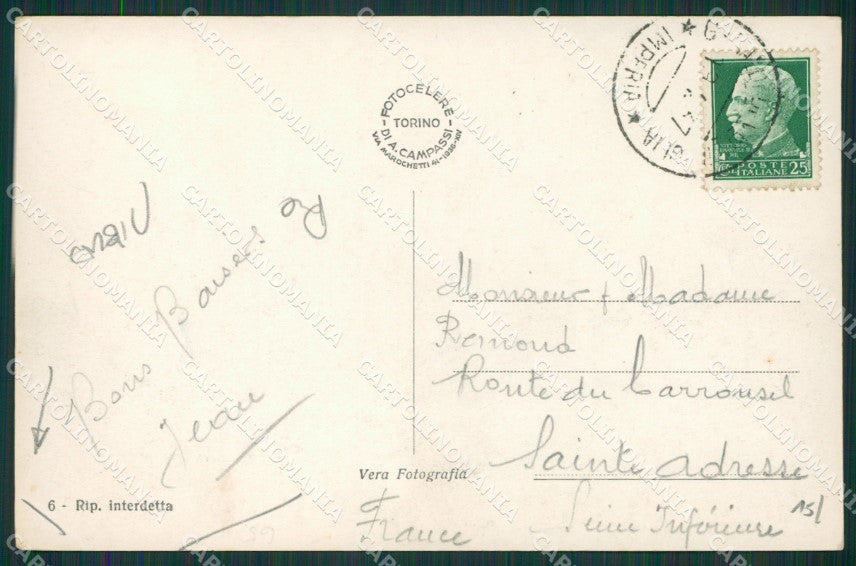 FOTOCELERE
TORINO
DI A. CAMPASSI
VIA MAROCHETTI 41 - 1936-XIV
IMPERIA
POSTE
ITALIANE 25
Bons Baisers
Jean
Monsieur & Madame
Remond
Route du Carrousel
Sainte Adresse
Seine Inférieure
France
Vera Fotografia
6 - Rip. interdetta
15/
CARTOLINOMANIA